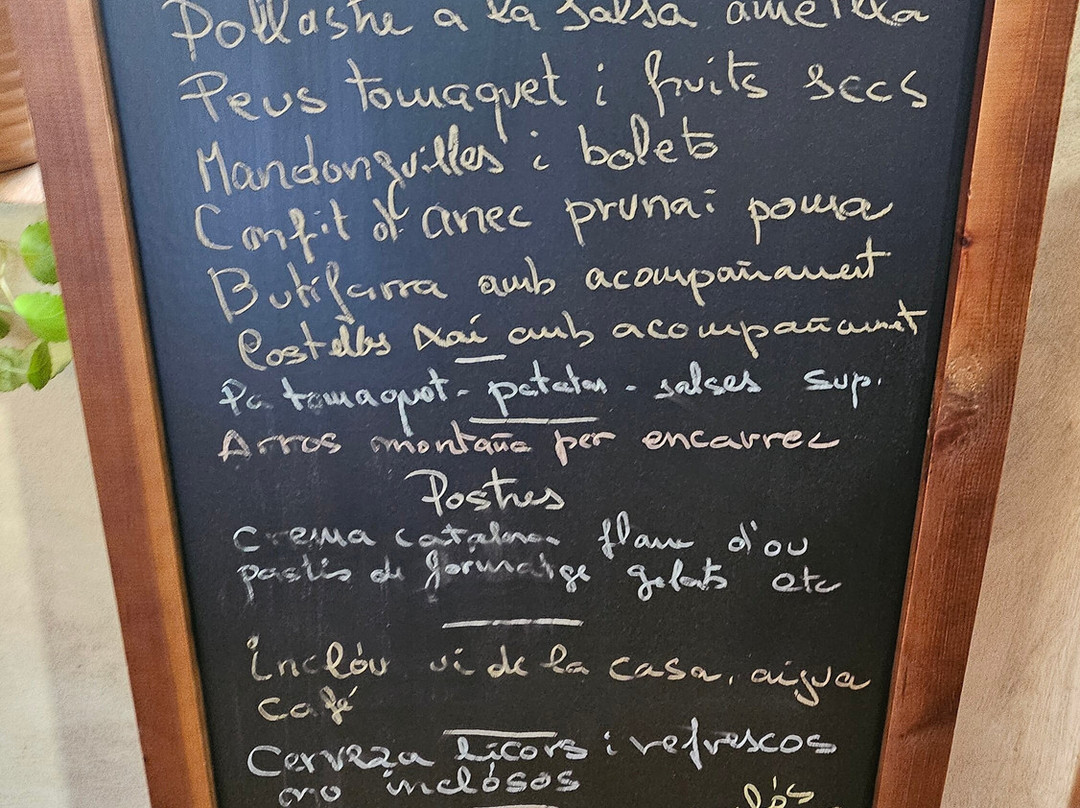 Pollastre a la salsa ametlla
Peus tomaquet i fruits secs
Mandonguilles i bolets
Confit d'anec pruna i poma
Butifarra amb acompañament
Costelles xai amb acompañament
Pa tomaquet - patatas - salses sup.
Arros montaña per encarrec
Postres
crema catalana flam d'ou
pastis de formatge gelats etc
Inclóu vi de la casa, aigua
Café
Cerveza licors i refrescos
no inclósos